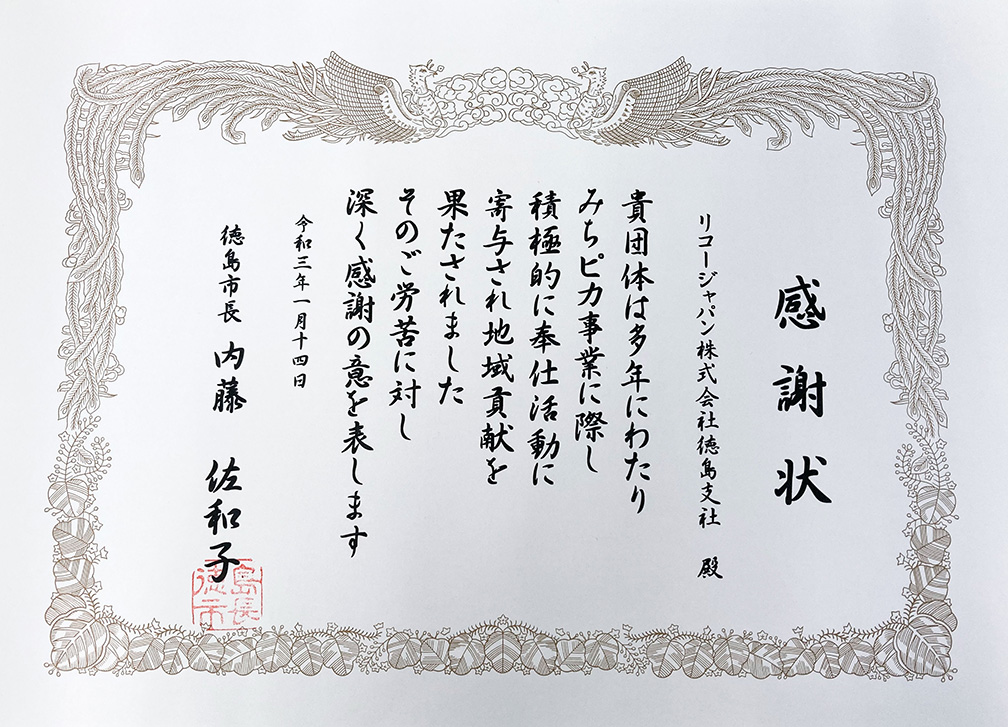 感謝状
リコージャパン株式会社徳島支社 殿
貴団体は多年にわたり
みちピカ事業に際し
積極的に奉仕活動に
寄与され地域貢献を
果たされました
そのご労苦に対し
深く感謝の意を表します
令和三年一月十四日
徳島市長 内藤 佐和子
徳島市長